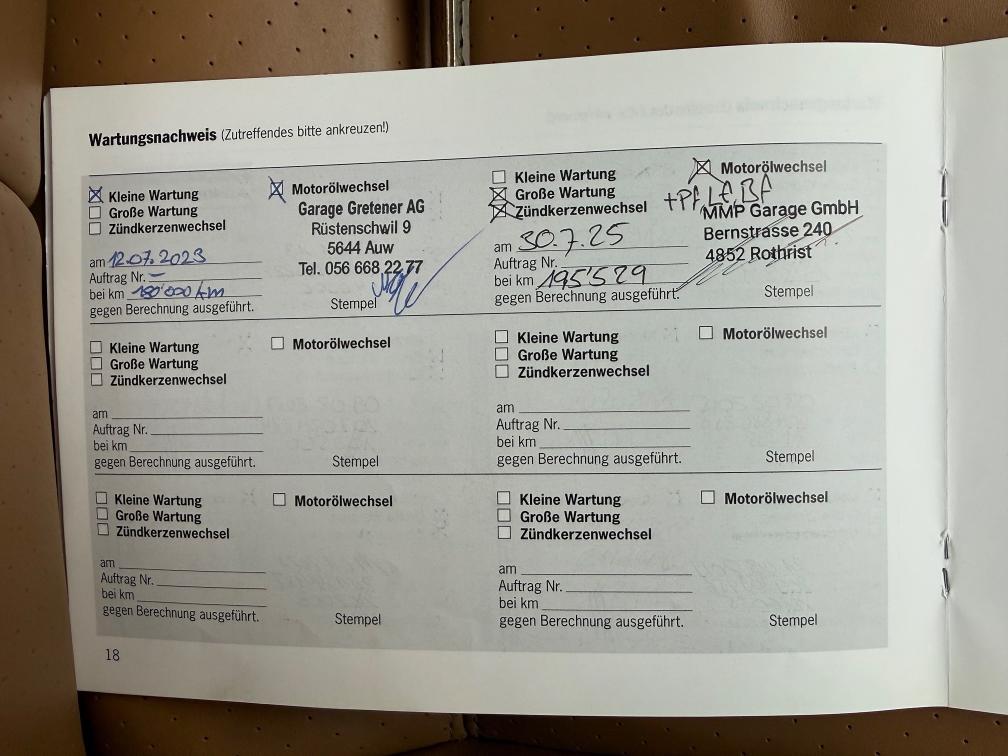 Wartungsnachweis (Zutreffendes bitte ankreuzen!)
Kleine Wartung
Große Wartung
Zündkerzenwechsel
Motorölwechsel
Garage Gretener AG
Rüstenschwil 9
5644 Auw
Tel. 056 668 22 77
am 12.07.2023
Auftrag Nr. –
bei km 180'000 km
gegen Berechnung ausgeführt.
Stempel
Kleine Wartung
Große Wartung
Zündkerzenwechsel
Motorölwechsel
MMP Garage GmbH
Bernstrasse 240
4852 Rothrist
am 30.7.25
Auftrag Nr.
bei km 195'529
gegen Berechnung ausgeführt.
Stempel
Kleine Wartung
Große Wartung
Zündkerzenwechsel
Motorölwechsel
am
Auftrag Nr.
bei km
gegen Berechnung ausgeführt.
Stempel
Kleine Wartung
Große Wartung
Zündkerzenwechsel
Motorölwechsel
am
Auftrag Nr.
bei km
gegen Berechnung ausgeführt.
Stempel
Kleine Wartung
Große Wartung
Zündkerzenwechsel
Motorölwechsel
am
Auftrag Nr.
bei km
gegen Berechnung ausgeführt.
Stempel
Kleine Wartung
Große Wartung
Zündkerzenwechsel
Motorölwechsel
am
Auftrag Nr.
bei km
gegen Berechnung ausgeführt.
Stempel
18